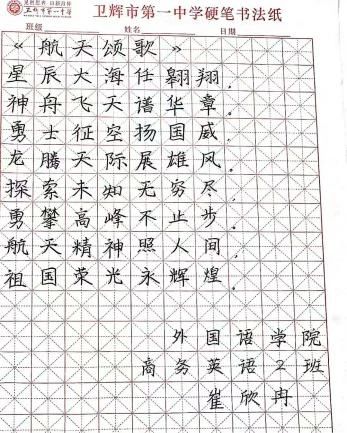 卫辉市第一中学硬笔书法纸
班级 姓名 日期
《航天颂歌》
星辰大海任翱翔,
神舟飞天谱华章.
勇士征空扬国威,
龙腾天际展雄风.
探索未知无穷尽,
勇攀高峰不止步.
航天精神照人间,
祖国荣光永辉煌.
外国语学院
商务英语2班
崔欣冉